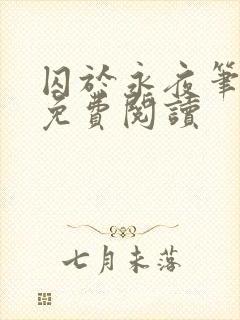 囚於永夜筆
免費閱讀
七月未落